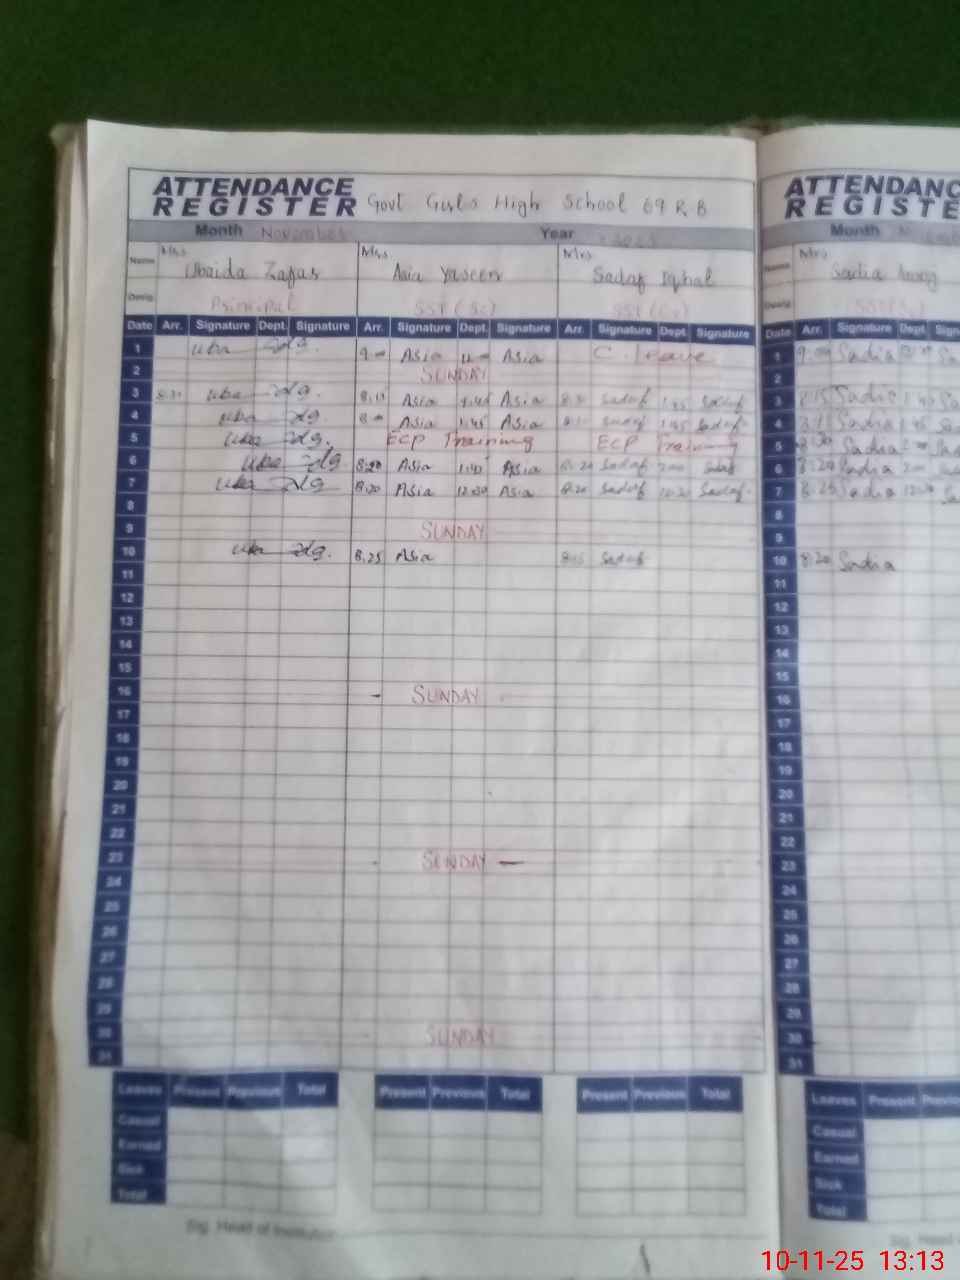 ATTENDANCE REGISTER Govt Girls High School 69 R.B
Month November Year 2025
Name Mrs Ubaida Zafar Mrs Asia Yaseen Mrs Sadaf Iqbal
Desig. Principal SST (Sc) SST
Date Arr. Signature Dept. Signature Arr. Signature Dept. Signature Arr. Signature Dept. Signature
1 Asia Asia C. leave
2 SUNDAY
3 Asia Asia Sadaf 1:45 Sadaf
4 Asia 1:45 Asia Sadaf 1:45 Sadaf
5 ECP Training ECP Training
6 8:20 Asia 1:40 Asia 8:20 Sadaf 2:00 Sadaf
7 8:20 Asia 12:30 Asia 8:20 Sadaf 12:30 Sadaf
8
9 SUNDAY
10 8:25 Asia Sadaf
11
12
13
14
15
16 - SUNDAY
17
18
19
20
21
22
23 - SUNDAY —
24
25
26
27
28
29
30 SUNDAY
31
Leaves Present Previous Total Present Previous Total Present Previous Total
Casual
Earned
Sick
Total
Sig. Head of Institution
ATTENDANC
REGISTE
Month
Name Mrs Sadia
Desig.
Date Arr. Signature Dept. Sign
1 Sadia
2
3 8:15 Sadia
4 Sadia
5 Sadia
6 8:20 Sadia
7 8:25 Sadia
8
9
10 8:20 Sadia
11
12
13
14
15
16
17
18
19
20
21
22
23
24
25
26
27
28
29
30
31
Leaves Present Previou
Casual
Earned
Sick
Total
Sig. Head
10-11-25 13:13